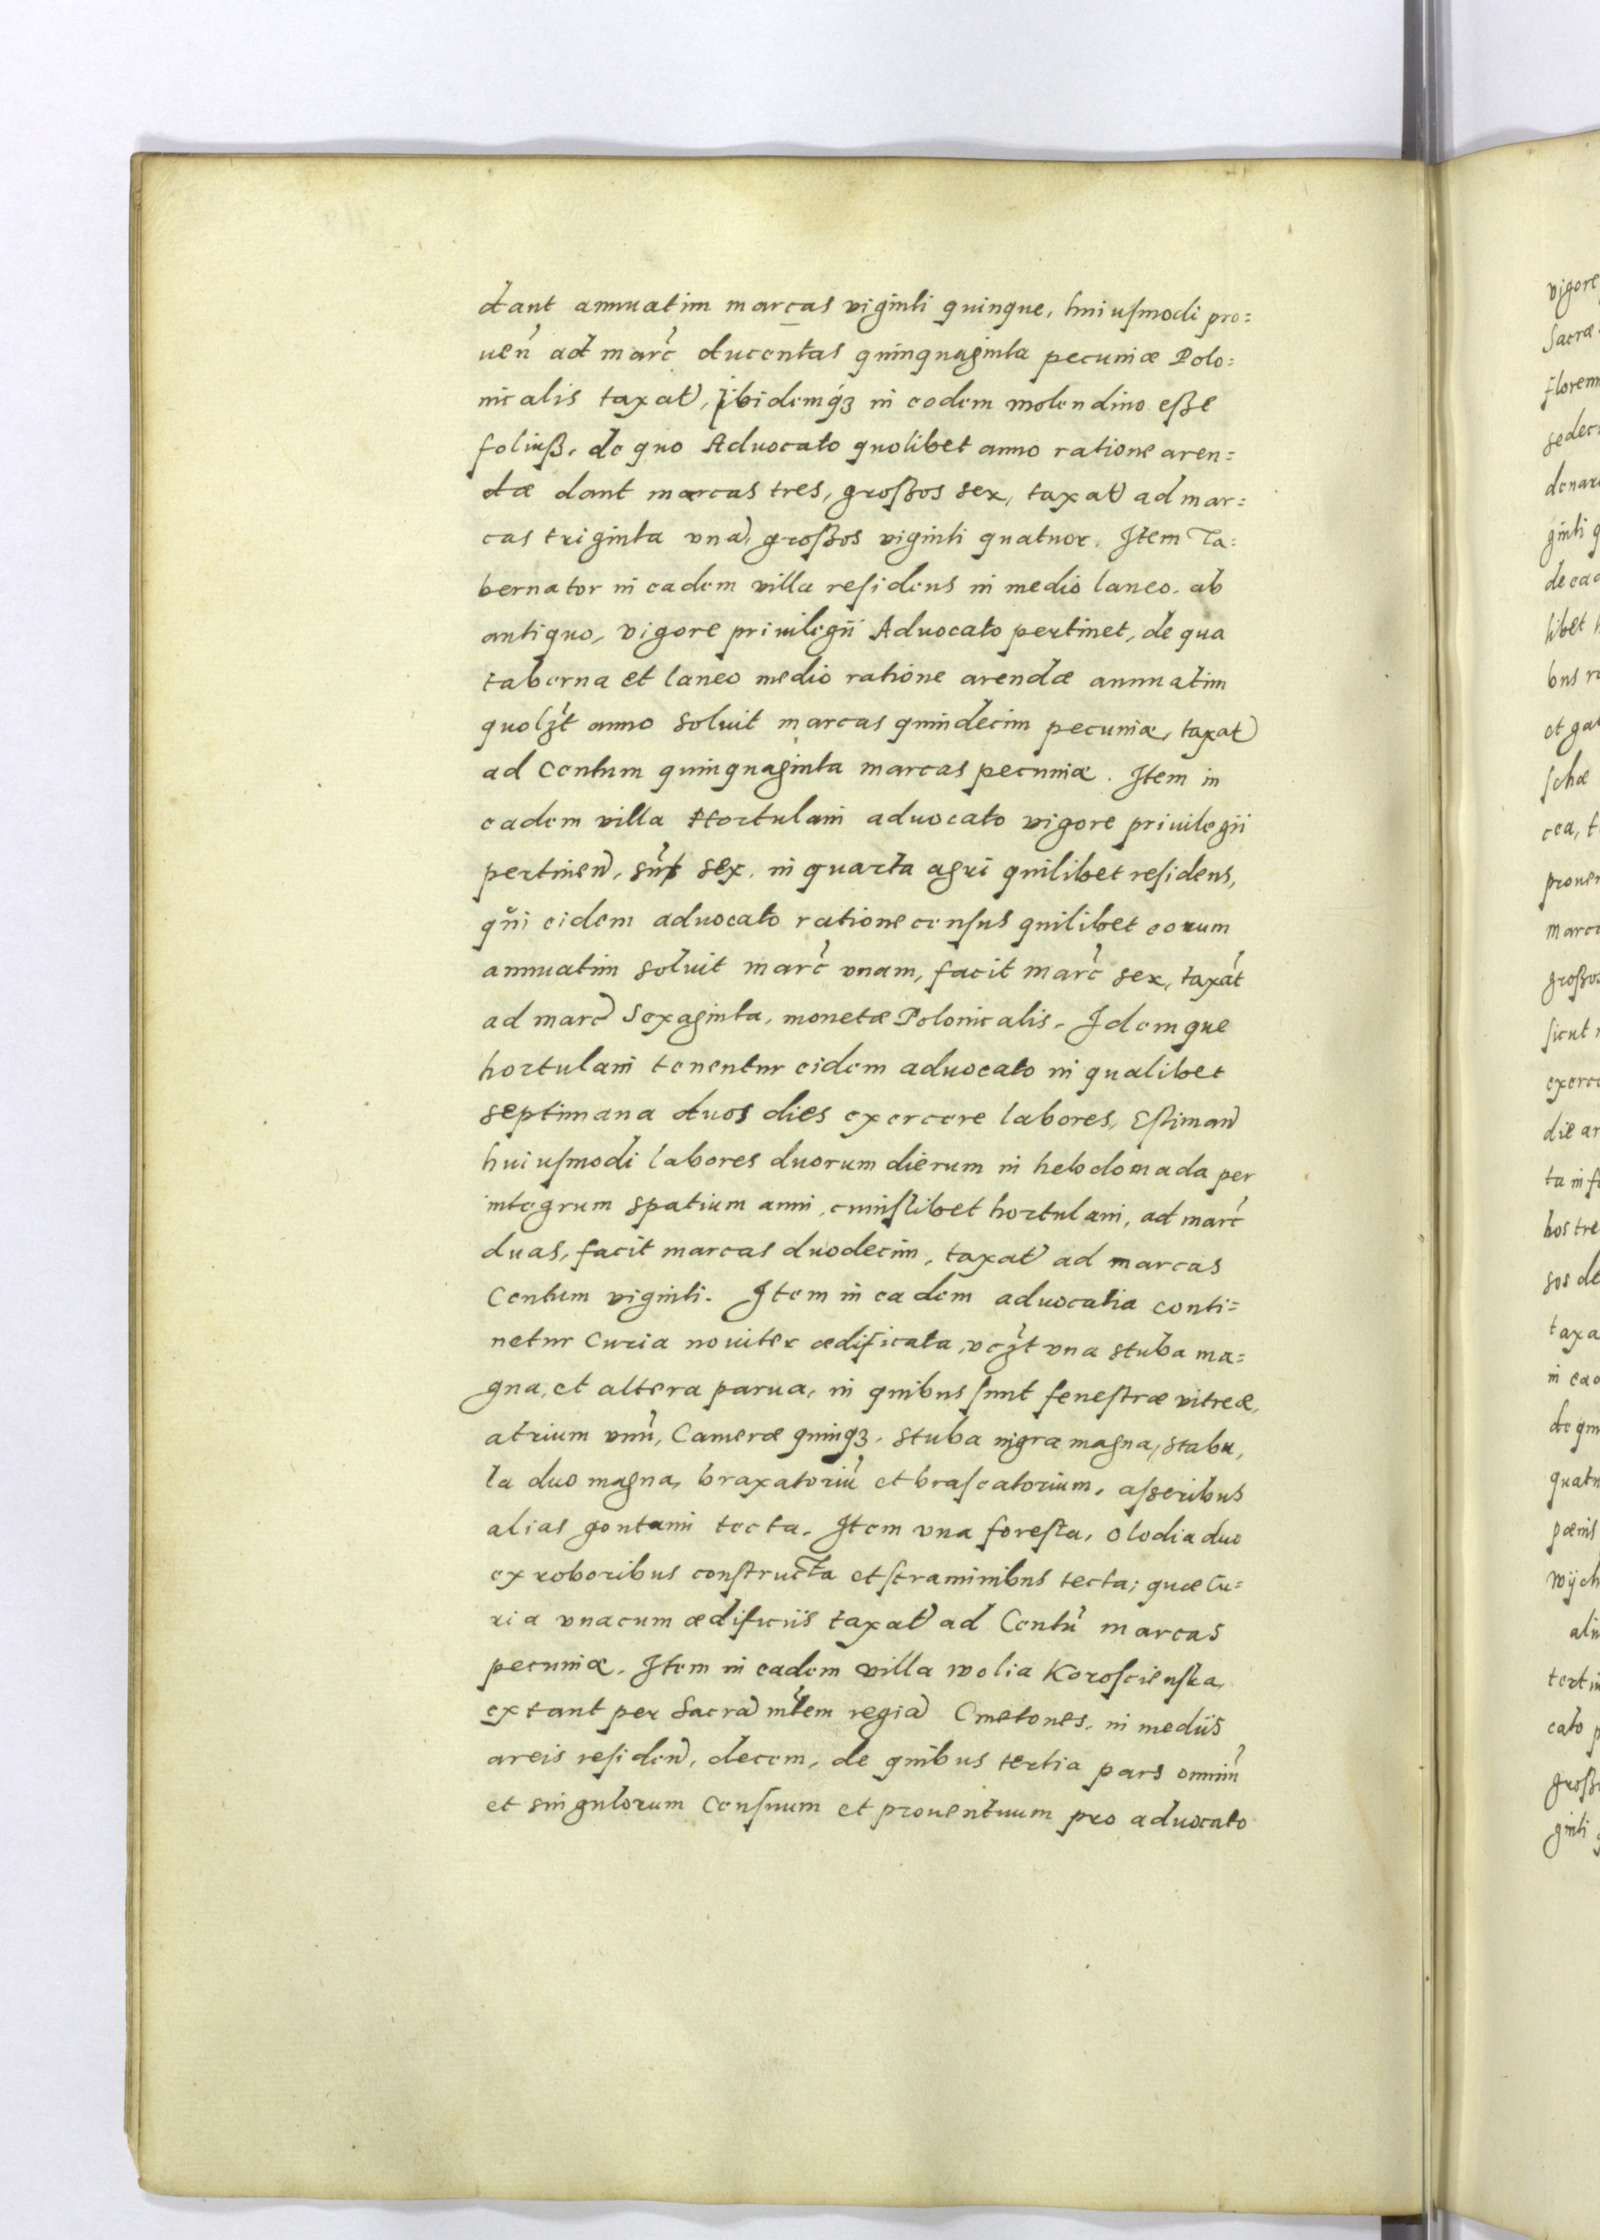 dant annuatim marcas viginti quinque, huiusmodi pro=
uen̄ ad marc̄ ducentas quinquaginta pecuniæ Polo=
nicalis taxat̄, Ibidemq́ꝫ in eodem molendino eſße
foliuß, de quo Aduocato quolibet anno ratione aren=
dæ dant marcas tres, großos sex, taxat̄ ad mar=
cas triginta vnā, großos viginti quatuor. Item Ta=
bernator in eadem villa residens in medio laneo, ab
antiquo, vigore priuilegii Aduocato pertinet, de qua
taberna et laneo medio ratione arendæ annuatim
quolꝫt anno soluit marcas quindecim pecuniæ, taxat̄
ad Centum quinquaginta marcas pecuniæ. Item in
eadem villa Hortulani aduocato vigore priuilegii
pertinen̄, sūt sex, in quarta agri quilibet residens,
qui eidem aduocato ratione census quilibet eorum
annuatim soluit marc̄ vnam, facit marc̄ sex, taxat̄
ad marc̄ Sexaginta, monetæ Polonicalis. Idemque
hortulani tenentur eidem aduocato in qualibet
septimana duos dies exercere labores, Estiman̄
huiusmodi labores duorum dierum in hebdomada per
integrum spatium anni, cuiuslibet hortulani, ad marc̄
duas, facit marcas duodecim, taxat̄ ad marcas
Centum viginti. Item in eadem aduocatia conti=
netur Curia nouiter ædificata, vcꝫt vna stuba ma=
gna, et altera parua, in quibus sunt fenestræ vitreæ,
atrium vnū, Cameræ quinqꝫ, stuba nigra magna, stabu,
la duo magna, braxatoriū et brascatorium, asseribus
alias gontami tecta. Item vna foresta, olodia duo
ex roboribus constructa et straminibus tecta; quæ Cu=
ria vnacum ædificiis taxat̄ ad Centū marcas
pecuniæ. Item in eadem villa wolia Koroscienska,
extant per Sacrā mtem regiā Cmetones, in mediis
areis residen̄, decem, de quibus tertia pars omniū
et singulorum Censuum et prouentuum pro aduocato